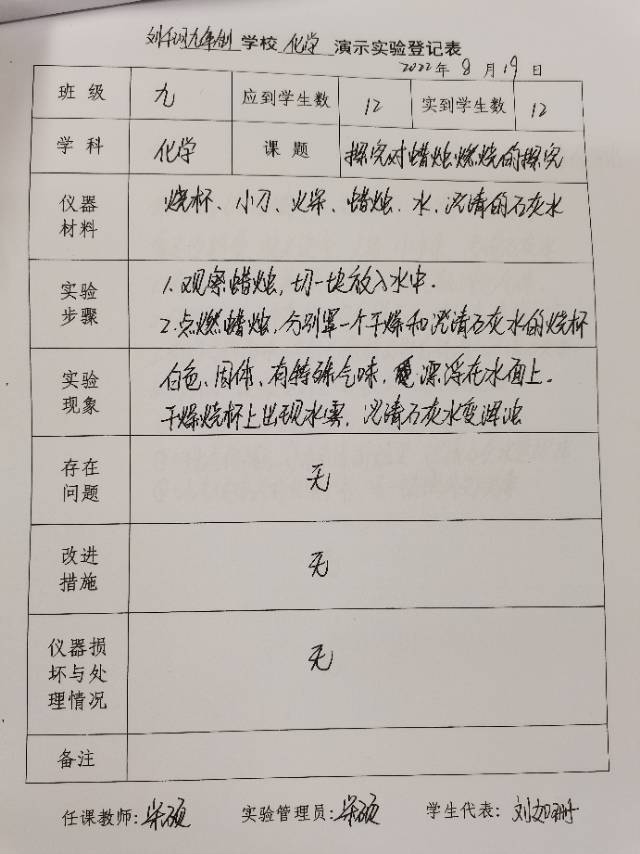 学校 化学 演示实验登记表
2022年8月19日
班级 九 应到学生数 12 实到学生数 12
学科 化学 课题 探究对蜡烛燃烧的探究
仪器材料 烧杯、小刀、火柴、蜡烛、水、澄清的石灰水
实验步骤 1.观察蜡烛,切一块放入水中.
2.点燃蜡烛,分别罩一个干燥和澄清石灰水的烧杯
实验现象 白色、固体、有特殊气味,漂浮在水面上.
干燥烧杯上出现水雾,澄清石灰水变浑浊
存在问题 无
改进措施 无
仪器损坏与处理情况 无
备注
任课教师: 实验管理员: 学生代表: